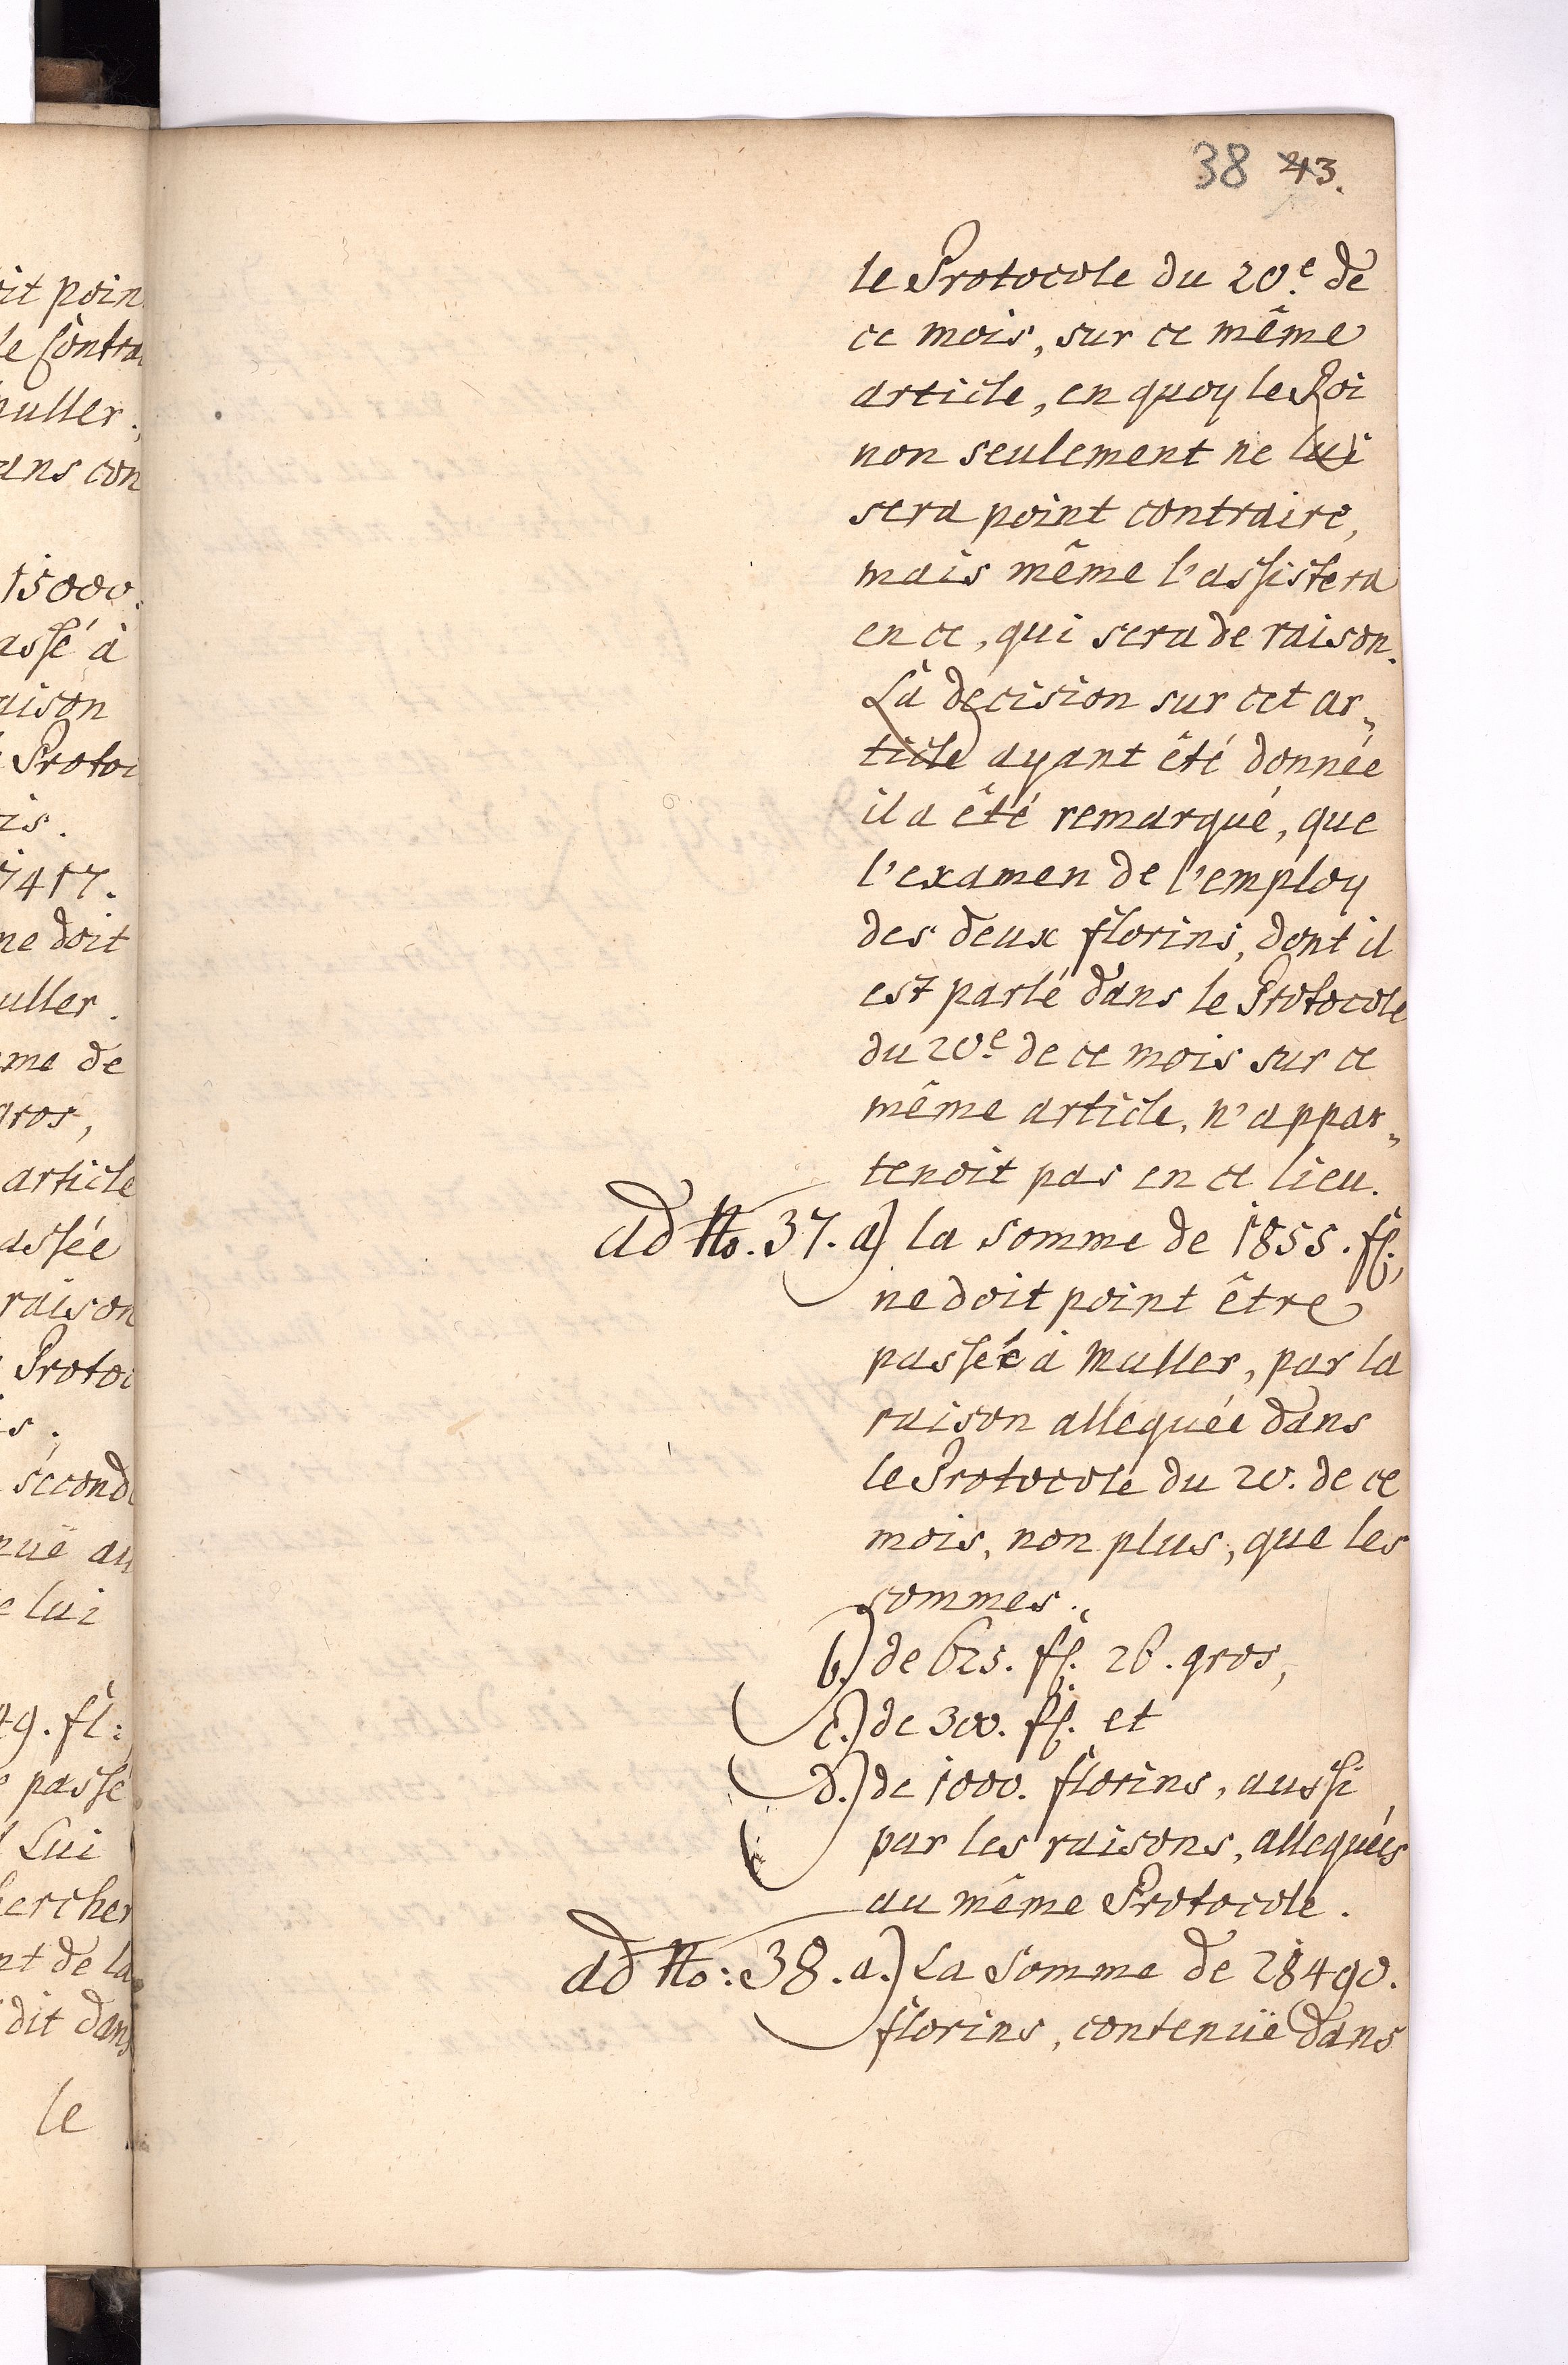 38 43.
le Protocole du 20.e de
ce mois, sur ce même
article, en quoy le Roi
non seulement ne lui
sera point contraire,
mais même l'assistera
en ce, qui sera de raison.
La decision sur cet ar„
ticle ayant êté donnée
il a êté remarqué, que
l'examen de l'employ
des deux florins, dont il
est parlé dans le Protocole
du 20.e de ce mois sur ce
même article, n'appar„
tenoit pas en ce lieu.
ad No. 37. a) la somme de 1855. fl.,
ne doit point être
passée à Muller, par la
raison alleguée dans
le Protocole du 20. de ce
mois, non plus, que les
sommes.,
b.) de 625. fl. 26. gros,
c.) de 300. fl. et
d.) de 1000. florins, aussi
par les raisons, alleguées
au même Protocole.
ad No: 38. a.) La Somme de 28490.
florins, contenuë dans
it poin
le Contra
uller.,
ans con
15000.
assé à
aison
Protoc
is.
7417.
ne doit
uller.
me de
gros,
article
assée
raison
Protoc
is.
second
nuë au
e lui
49. fl:
passé
Lui
ercher
nt de la
dit dans
le